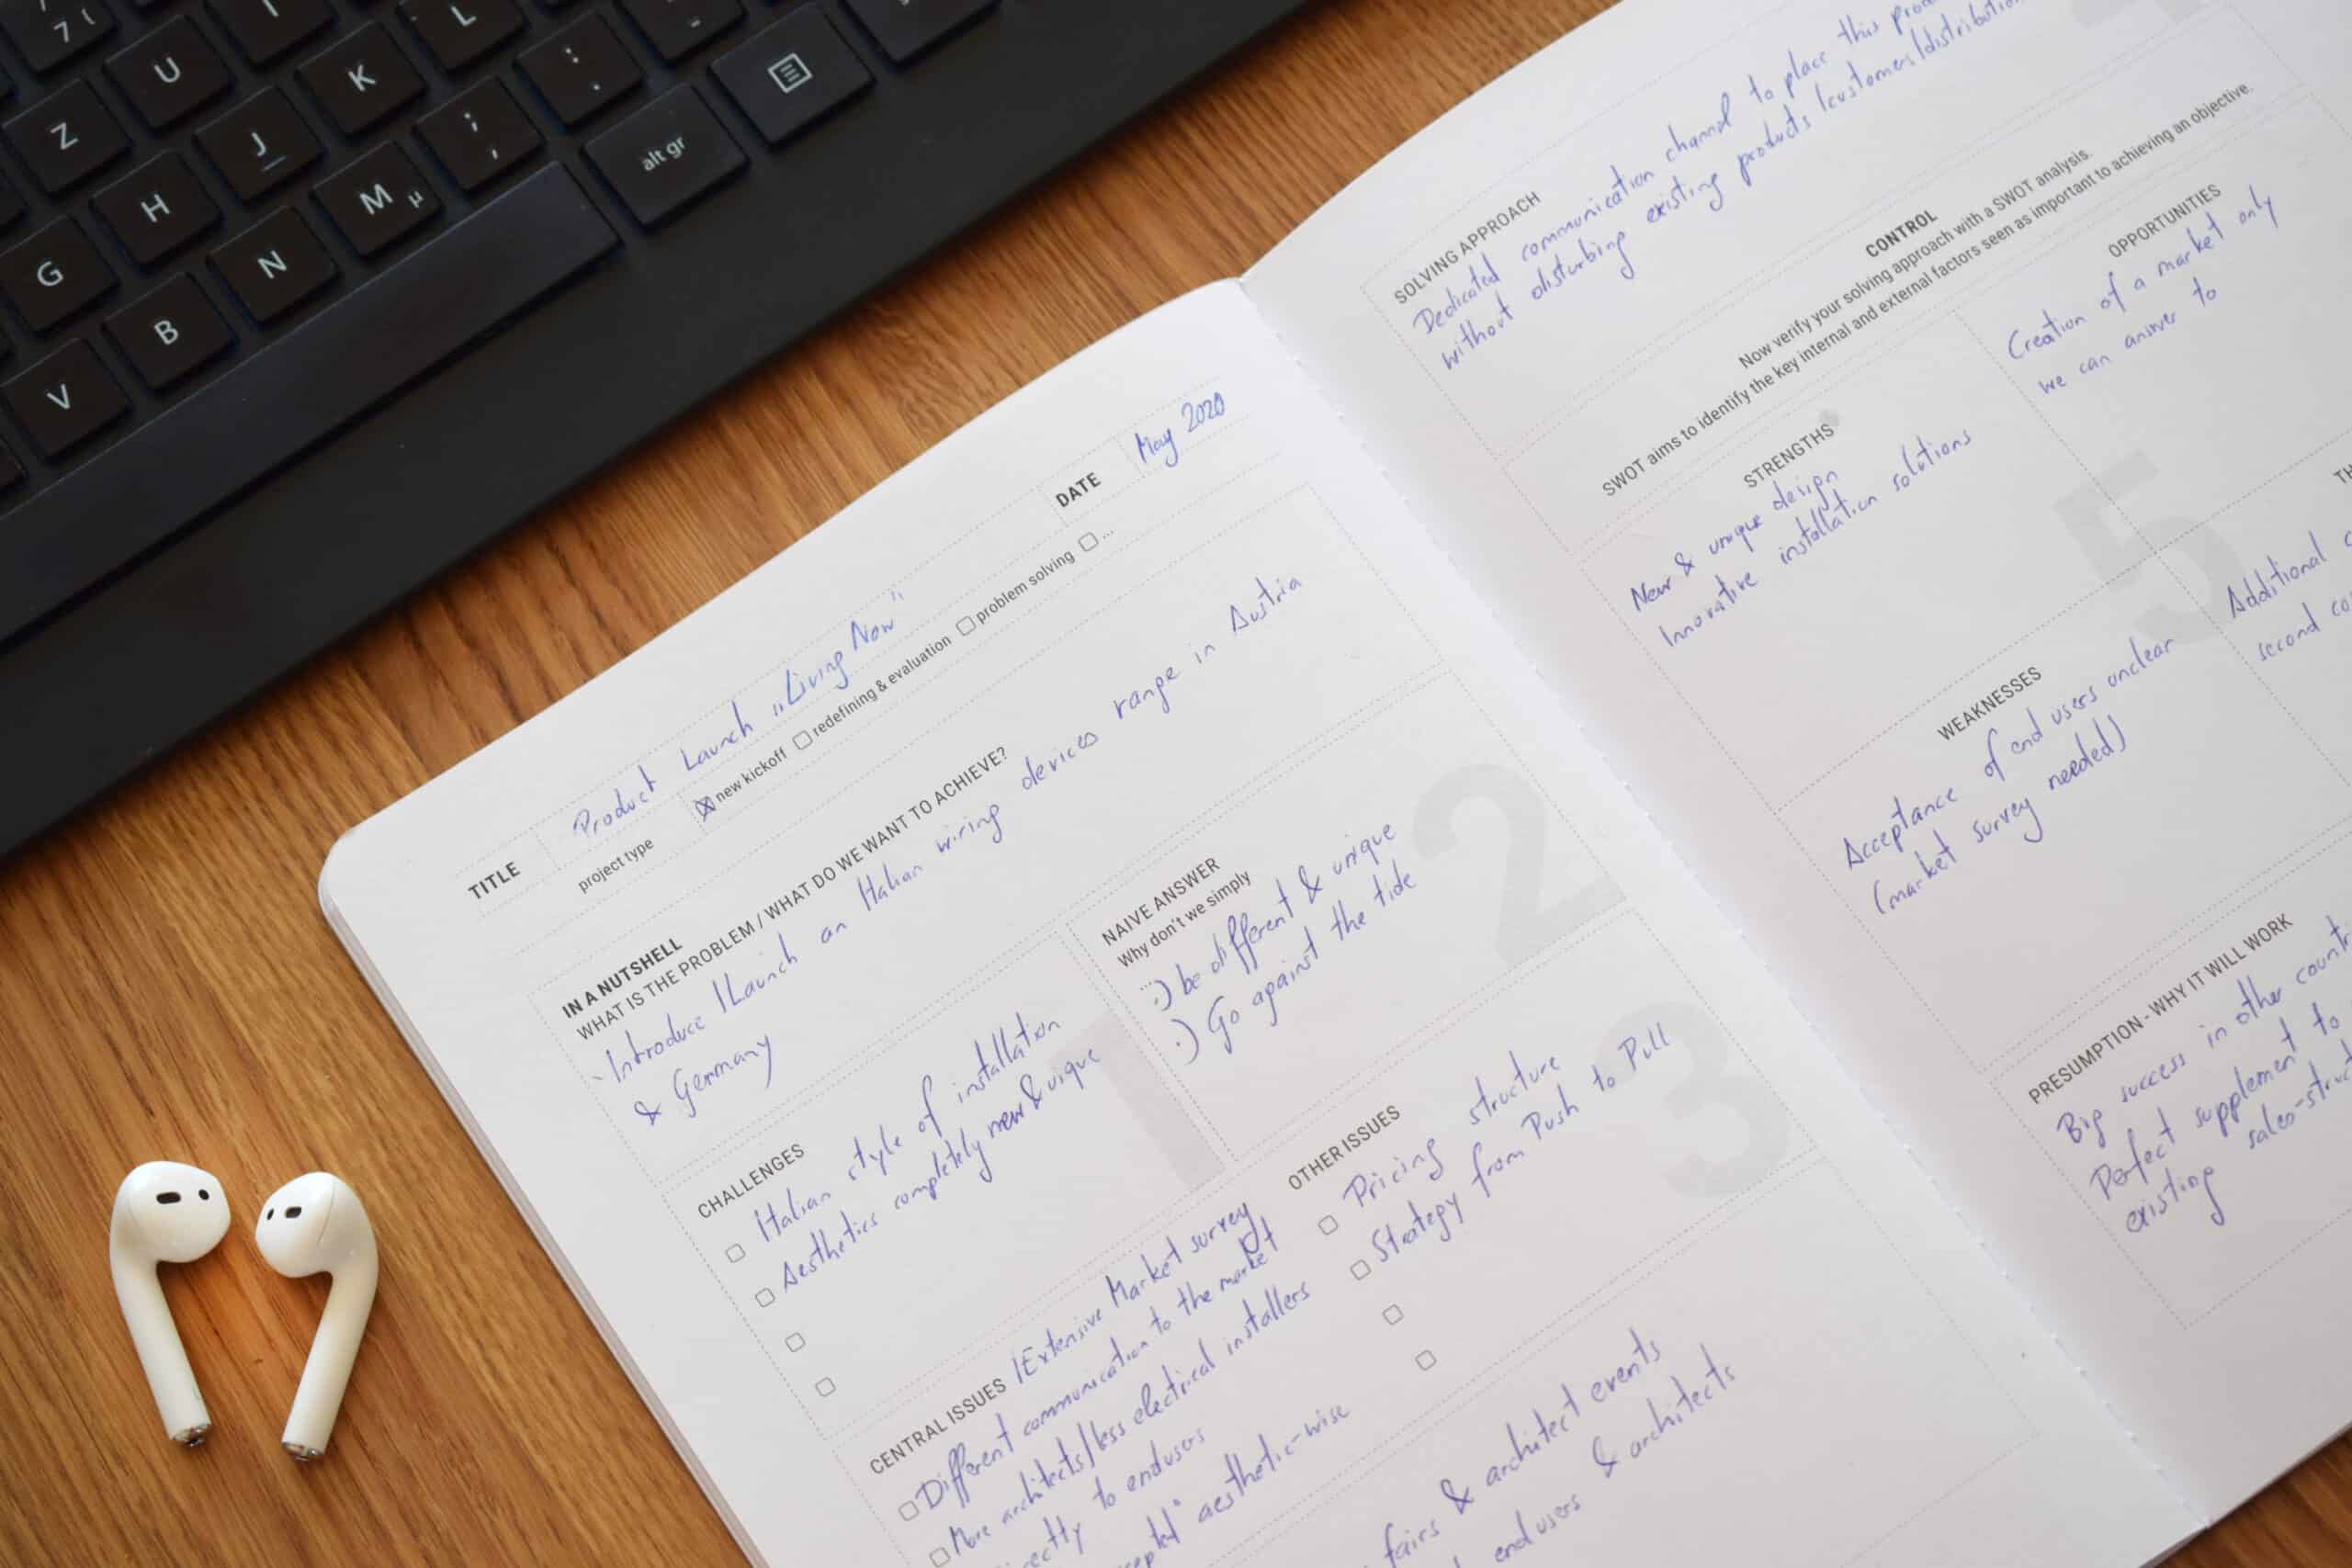 7 {
U
I
L
Z
J
K
: .
-
H
M µ
; ,
alt gr
G
N
B
V
TITLE
Product Launch „Living Now"
DATE
May 2020
project type
new kickoff
redefining & evaluation
problem solving
...
IN A NUTSHELL
WHAT IS THE PROBLEM / WHAT DO WE WANT TO ACHIEVE?
- Introduce / Launch an Italian wiring devices range in Austria
& Germany
CHALLENGES
1
Italian style of installation
Aesthetics completely new & uique
NAIVE ANSWER
Why don't we simply
...
2
.) be different & unique
.) Go against the tide
CENTRAL ISSUES / Extensive Market survey
Different communication to the market
More architects/less electrical installers
to endusers
aesthetic-wise
OTHER ISSUES
3
Pricing structure
Strategy from Push to Pull
fairs & architect events
endusers & architects
SOLVING APPROACH
Dedicated communication channel to place this
without disturbing existing products (customers/distribution
CONTROL
Now verify your solving approach with a SWOT analysis.
SWOT aims to identify the key internal and external factors seen as important to achieving an objective.
STRENGTHS
New & unique design
Innovative installation solutions
OPPORTUNITIES
Creation of a market only
we can answer to
5
WEAKNESSES
Acceptance of end users unclear
(market survey needed)
Additional
second
PRESUMPTION - WHY IT WILL WORK
Big success in other
Perfect supplement to
existing